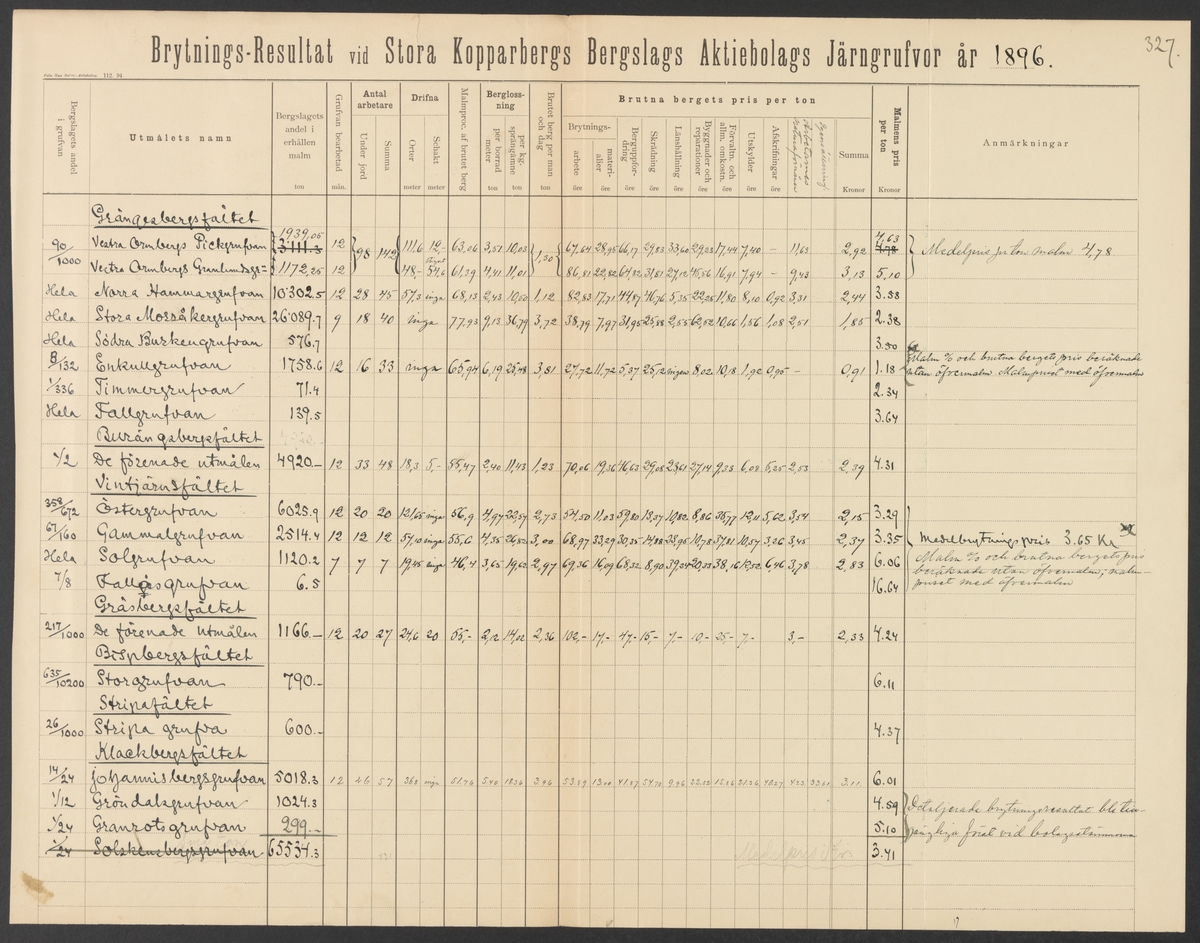 327.
Brytnings-Resultat vid Stora Kopparbergs Bergslags Aktiebolags Järngrufvor år 1896.
112. 94
Bergslagets andel i grufvan
Utmålets namn
Bergslagets andel i erhållen malm ton
Grufvan bearbetad mån.
Antal arbetare
Under jord
Summa
Drifna
Orter meter
Schakt meter
Malmproc. af brutet berg
Berglossning
per borrad meter ton
per kg. sprängämne ton
Brutet berg per man och dag ton
Brutna bergets pris per ton
Brytnings-
arbete öre
materialier öre
Berguppfordring öre
Skrädning öre
Länshållning öre
Byggnader och reparationer öre
Förvaltn. och allm. omkostn. öre
Utskylder öre
Afskrifningar öre
Summa Kronor
Malmens pris per ton Kronor
Anmärkningar
Grängesbergsfältet
90/1000 Vestra Ormbergs Pickgrufvan 1939,05 3111.3 12 98 142 111,6 12,- 63,06 3,51 10,03 1,30 67,64 28,95 66,17 29,83 33,60 29,23 17,44 7,40 - 11,63 2,92 4,63 4,78 Medelpris pr ton malm 4,78
Vestra Ormbergs 1172,25 12 48,- 54,6 61,39 4,41 11,01 86,81 22,82 64,82 31,81 27,12 45,56 16,91 7,94 - 9,43 3,13 5.10
Hela Norra Hammargrufvan 10302.5 12 28 45 57,3 inga 68,13 2,43 10,60 1,12 82,83 17,71 44,87 46,76 5,35 22,25 11,80 8,10 0,92 3,31 2,44 3.58
Hela Stora Mossåkergrufvan 26089.7 9 18 40 inga 77,93 9,13 36,79 3,72 38,79 7,97 31,95 25,88 2,55 62,52 10,66 1,56 1,08 2,51 1,85 2.38
Hela Södra Burkengrufvan 576.7 3.50
8/132 Enkullgrufvan 1758.6 12 16 33 inga 65,94 6,19 25,48 3,81 27,72 11,72 5,37 25,12 ingen 8,02 10,18 1,92 0,95 - 0,91 1.18 Malm % och brutna bergets pris beräknade
utan öfvermalm Malmpriset med öfvermalm
1/336 Timmergrufvan 71.4 2.34
Hela Fallgrufvan 139.5 3.64
Burängsbergsfältet
1/2 De förenade utmålen 4920.- 12 33 48 18,3 5,- 55,47 2,40 11,43 1,23 70,06 19,36 46,63 29,08 23,61 27,14 9,33 6,08 5,25 2,53 2,39 4.31
Vintjärnsfältet
358/672 Östergrufvan 6025.9 12 20 20 121,65 inga 56,9 4,97 22,57 2,73 54,50 11,03 59,80 13,37 10,82 8,86 35,77 12,11 5,62 3,54 2,15 3.29
67/160 Gammalgrufvan 2514.4 12 12 12 57,10 inga 55,6 4,35 26,82 3,00 68,97 33,29 30,35 14,88 38,95 10,78 37,81 10,57 3,36 3,45 2,37 3.35 Medelbrytningspris 3.65 Kr
Hela Solgrufvan 1120.2 7 7 7 19,45 inga 46,4 3,65 19,62 2,97 69,36 16,09 68,32 8,90 39,24 20,33 38,16 12,52 6,46 3,78 2,83 6.06 Malm % och brutna bergets pris
beräknade utan öfvermalm; malmpriset med öfvermalm
7/8 6.5 16.64
Gräsbergsfältet
217/1000 De förenade utmålen 1166.- 12 20 27 24,6 20 55,- 2,12 14,02 2,36 102,- 17,- 47,- 15,- 7,- 10,- 25,- 7,- 3,- 2,33 4.24
Bispbergsfältet
635/10200 Storgrufvan 790.- 6.11
Stripafältet
26/1000 Stripa grufva 600.- 4.37
Klackbergsfältet
14/24 Johannisbergsgrufvan 5018.3 12 46 57 51.76 3.96 3.11 6.01
1/12 Gröndalsgrufvan 1024.3 4.59 Detaljerade brytningsresultat bli till-
1/24 Granrotsgrufvan 299.- 5.10 gängliga först vid bolagsstämma
1/24 Solskensbergsgrufvan 65534.3 3.41